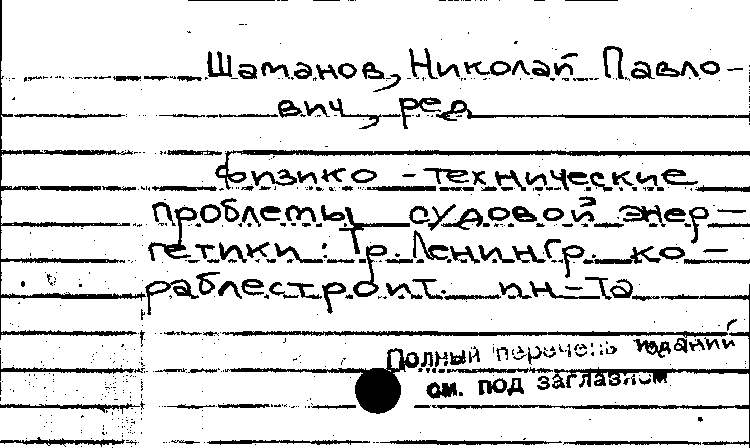 Шаманов, Николай Павло-
вич, ред
Физико-технические
проблемы судовой энер-
гетики: Тр. Ленингр. ко-
раблестроит. ин-та
Полный перечень изданий
см. под заглавием